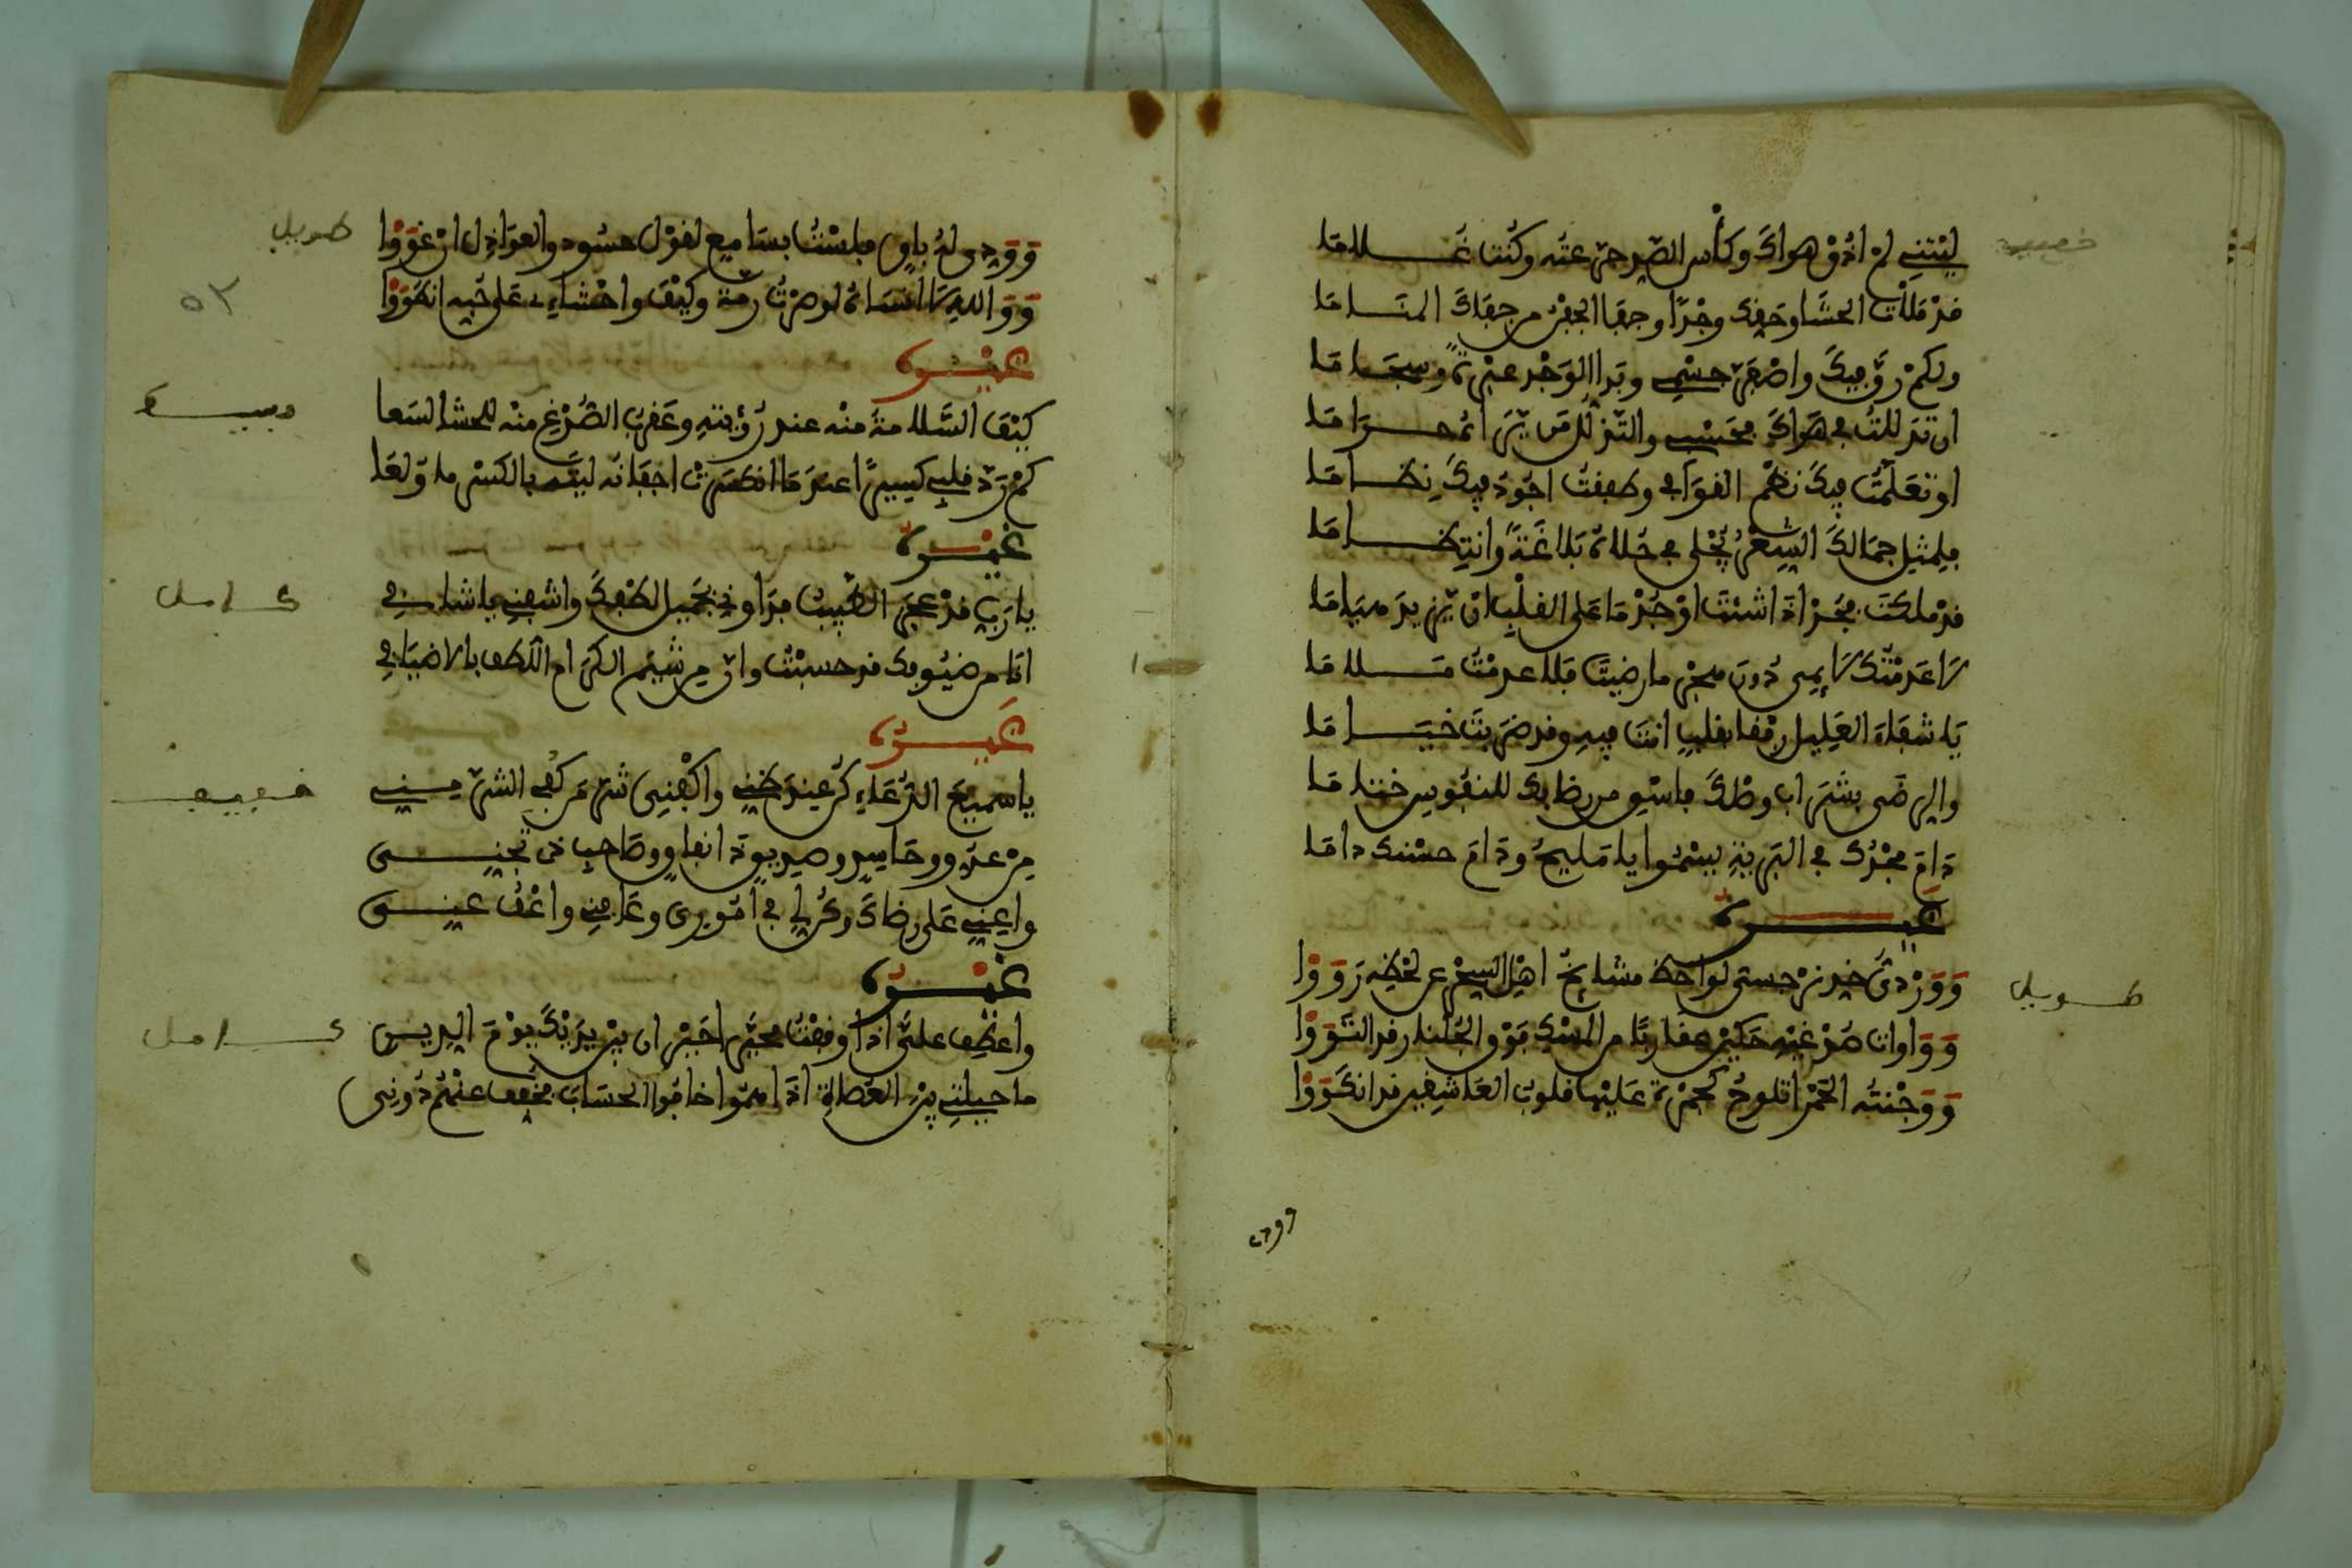 خفيف
ليتني لم اذق هواك وكأس الصبر جرعته وكنت غلاما
قد ملات الحشا وحقك وجدا وجفا الجفن من جفاك المناما
ولكم رق فيك واصفر جسمي وبرا الوجد عبرة وسجاما
ان تذللت في هواك فحسبي والتذلل من يرى حراما
او تعلمت فيك نظم القوافي وطفقت اجود فيك نظاما
فلمثل جمالك الشعر يجلى في حلاة بلاغة وانتظاما
قد ملكت فجر اذا شئت او جد ما على القلب ان يزيد هياما
لا عدمتك لايمي دون هجر ما رضيت فلا عدمت ملاما
يا شفاء العليل رفقا بقلب انت فيه وقد ضربت خياما
والرضى بشراب وصلك فاسق من رضابك للنفوس ختاما
دام مجدك في البرية يسموا يا مليح ودام حسنك داما
غيره
طويل
ووردى خد نرجسي لواحظ مشايخ اهل السحر عن لحظه رووا
وواوات صدغيه حكين عقاربا من المسك فوق الجلنار قد التووا
ووجنته الحمرا تلوح كجمرة عليها قلوب العاشقين قد انكووا
وودى
طويل
ووجدي له باق فلست بسامع لقول حسود والعواذل ان غووا
٥٢
ووالله لا انساه لو صرت رمة وكيف واحشاءي على حبه انطووا
غيره
بسيط
كيف السلامة منه عند رؤيته وعقرب الصدغ منه للحشا لسعا
كم رد قلبي كسيرا عند ما انكسرت اجفانه ليته بالكسر ما ولعا
غيره
كامل
يا رب قد عجز الطبيب فداوني بجميل لطفك واشفني يا شافي
انا من ضيوفك قد حسبت وان من شيم الكرام اللطف بالاضياف
غيره
خفيف
يا سميع الدعاء كن عند ظني واكفني شر من كفى الشر مني
من عدو وحاسد وصديق ذا نفاق وصاحب ذى تجني
واعني على رضاك وكن لي في اموري وعافني واعف عني
غيره
كامل
واعطف علي اذا وقفت محيرا حيران بين يديك يوم الدين
ما حيلتي بين العصاة اذا هموا خافوا الحساب فخفف عنهم دوني